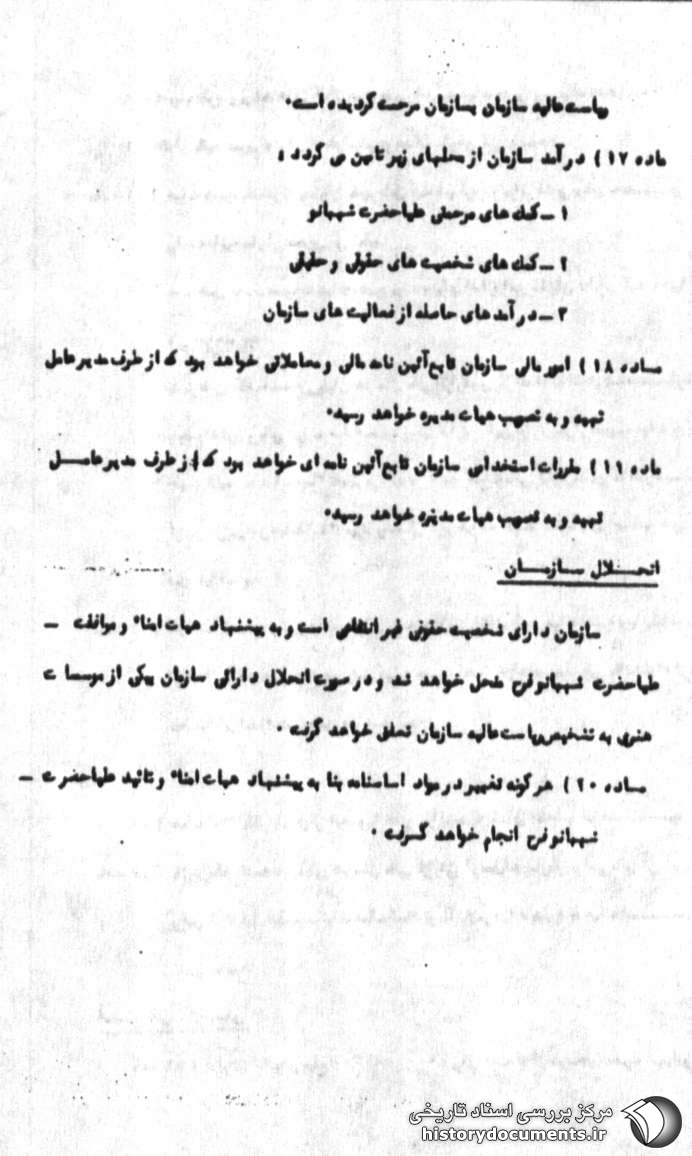 ریاست عالیه سازمان بسازمان مرحمت گردیده است.
ماده ۱۷ ) درآمد سازمان از محلهای زیر تامین می گردد :
۱ ـ کمک های مرحمتی علیاحضرت شهبانو
۲ ـ کمک های شخصیت های حقوقی و حقیقی
۳ ـ درآمد های حاصله از فعالیت های سازمان
مـاده ۱۸ ) امور مالی سازمان تابع آئین نامه مالی و معاملاتی خواهد بود که از طرف مدیر عامل
تهیه و به تصویب هیات مدیره خواهد رسید.
ماده ۱۹ ) مقررات استخدامی سازمان تابع آئین نامه ای خواهد بود که از طرف مدیر عامـــل
تهیه و به تصویب هیات مدیره خواهد رسید.
انحـــلال ســازمــان
سازمان دارای شخصیت حقوقی غیر انتفاعی است و به پیشنهاد هیات امناء و موافقت ـ
علیاحضرت شهبانو فرح منحل خواهد شد و در صورت انحلال دارائی سازمان بیکی از موسسات
هنری به تشخیص ریاست عالیه سازمان تعلق خواهد گرفت .
مـاده ۲۰ ) هر گونه تغییر در مواد اساسنامه بنا به پیشنهاد هیات امناء و تائید علیاحضرت ـ
شهبانو فرح انجام خواهد گـرفت .
مرکز بررسی اسناد تاریخی
historydocuments.ir